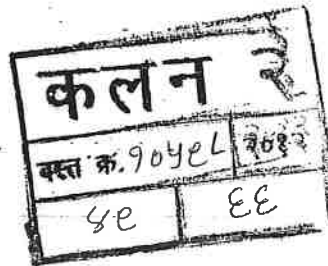 कलन २
दस्त क्र. १०५९८ २०१२
४९ ६६